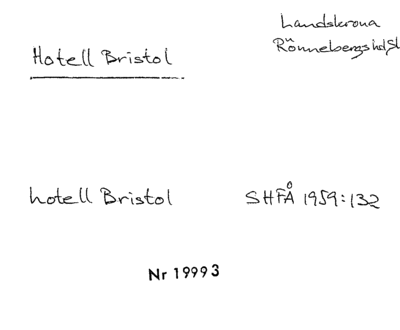 Landskrona
Rönnebergs hd Sk
Hotell Bristol
hotell Bristol SHFÅ 1959:132
Nr 19993